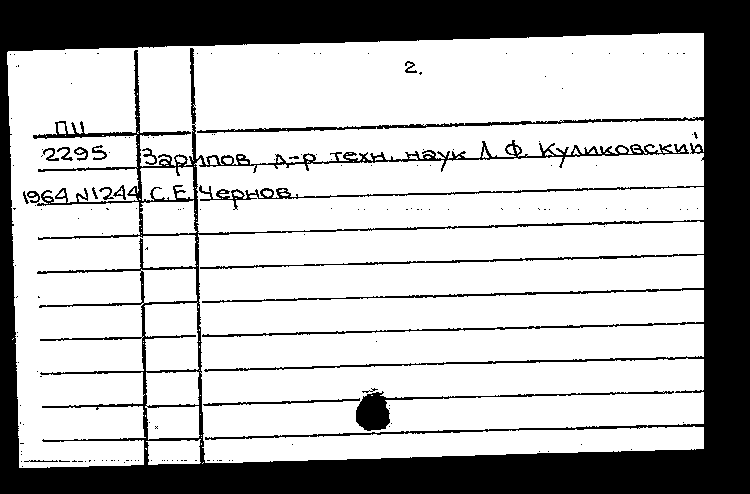 2.
ПЦ
2295 Зарипов, д-р техн. наук Л. Ф. Куликовский,
1964 N1244 С. Е. Чернов.